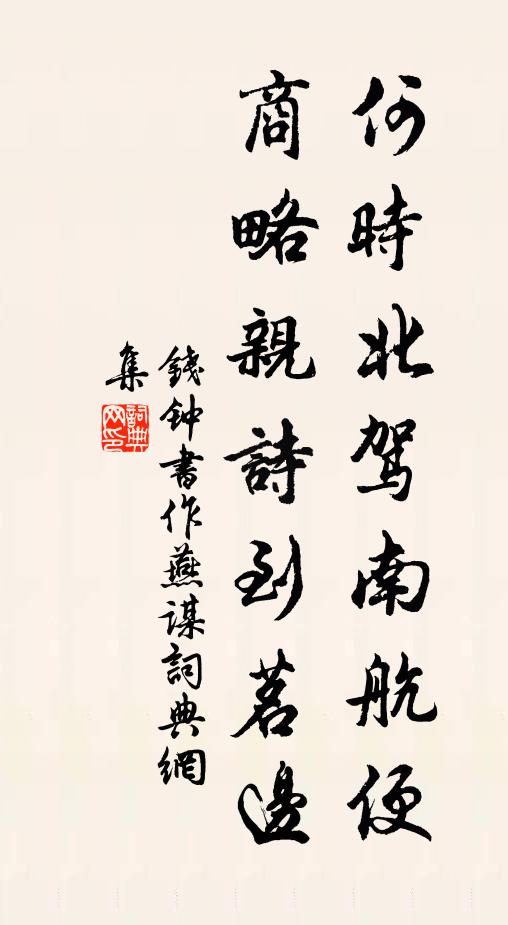 何時北駕南航便
商略親詩到茗邊
錢钟書作燕谋詞典網
集
詞典網印